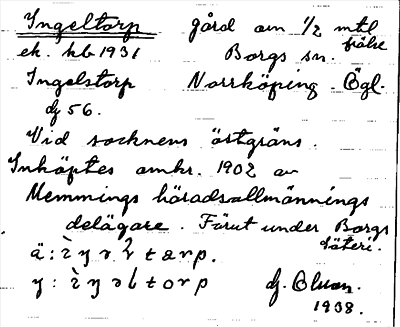 Ingeltorp gård om 1/2 mtl frälse
ek. kb 1931 Borgs sn.
Ingelstorp Norrköping. Ögl.
dj 56.
Vid socknens östgräns.
Inköptes omkr. 1902 av
Memmings häradsallmännings
delägare. Förut under Borgs
säteri.
ä:
y:
1938.